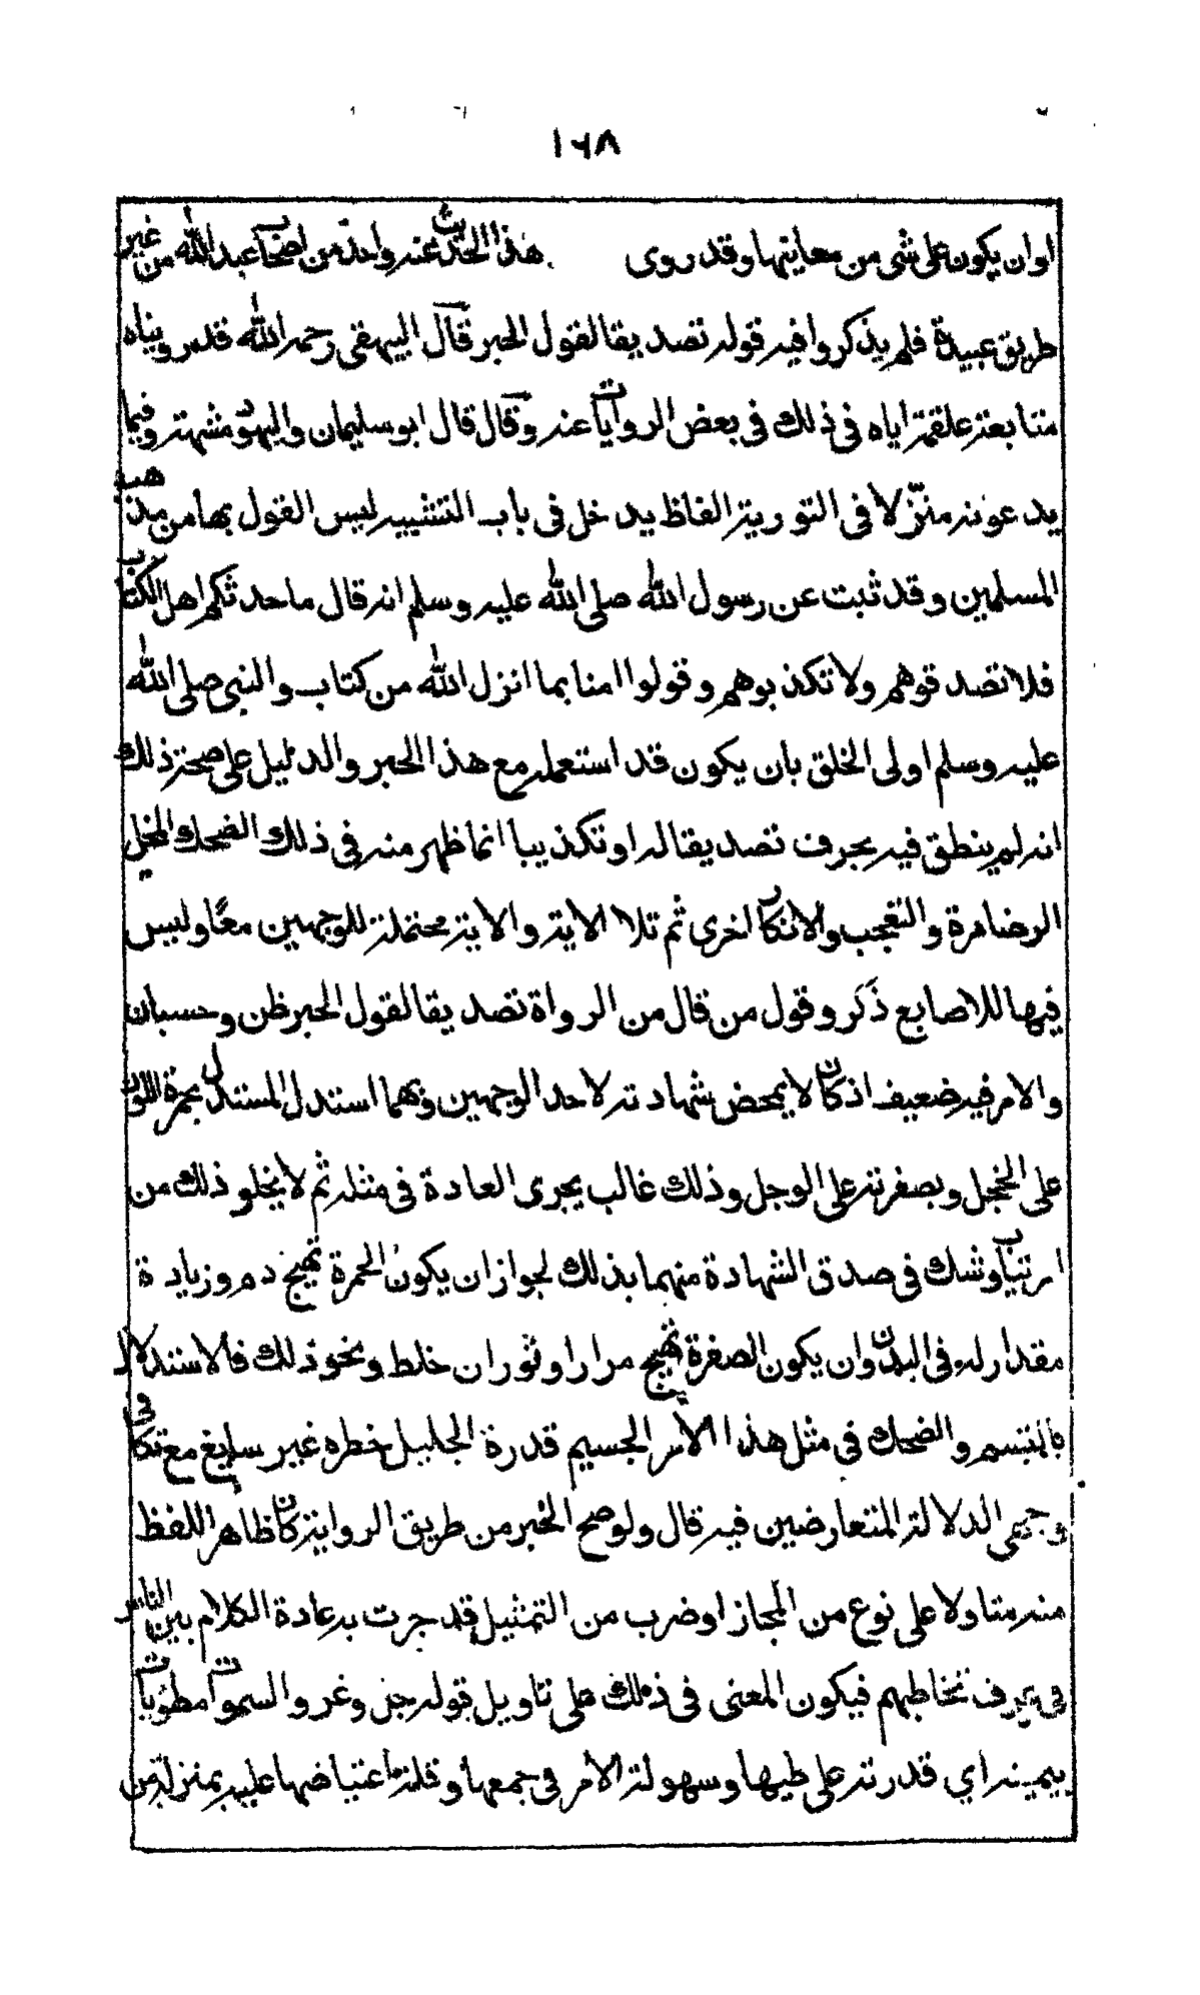 ١٦٨
او ان يكون على شئ من معانيها وقد روى هذا الحديث عنه واحد من اصحاب عبد الله من غير
طريق عبيدة فلم يذكروا فيه قوله تصديقا لقول الحبر قال البيهقى رحمه الله قد روينا ه
متابعة علقمة اياه فى ذلك فى بعض الروايات عنه وقال قال ابو سليمان واليهود مشبهة وفيما
يدعونه منزّلا فى التورية الفاظ يدخل فى باب التشبيه ليس القول بها من مذهب
المسلمين وقد ثبت عن رسول الله صلى الله عليه وسلم انه قال ما حدثكم اهل الكتاب
فلا تصدقوهم ولا تكذبوهم وقولوا امنا بما انزل الله من كتاب والنبى صلى الله
عليه وسلم اولى الخلق بان يكون قد استعمله مع هذا الحبر والدليل على صحة ذلك
انه لم ينطق فيه بحرف تصديقا له او تكذيبا انما ظهر منه فى ذلك الضحك المخيل
الرضا مرة والتعجب والانكار اخرى ثم تلا الاية والاية محتملة للوجهين معًا وليس
فيها للاصابع ذكر وقول من قال من الرواة تصديقا لقول الحبر ظن وحسبان
والامر فيه ضعيف اذ كان لا يمحض شهادته لاحد الوجهين وبهما استدل المستدل بحمرة اللون
على الخجل وبصفرته على الوجل وذلك غالب يجرى العادة فى مثله ثم لا يخلو ذلك من
ارتياب وشك فى صدق الشهادة منهما بذلك لجواز ان يكون الحمرة تهيج دم وزيادة
مقدار له فى البدن وان يكون الصفرة تهيج مرار او ثوران خلط ونحو ذلك فالاستدلال
بالتبسم والضحك فى مثل هذا الامر الجسيم قدرة الجليل خطره غير سايغ مع تكافى
وجهى الدلالة المتعارضين فيه قال ولو صح الخبر من طريق الرواية كان ظاهر اللفظ
منه متاولا على نوع من المجاز او ضرب من التمثيل قد جرت به عادة الكلام بين الناس
فى عرف تخاطبهم فيكون المعنى فى ذلك على تاويل قوله جز وعز والسموات مطويات
بيمينه اي قدرته على طيها وسهولة الامر فى جمعها وقلة اعتياضها عليه بمنزلة من